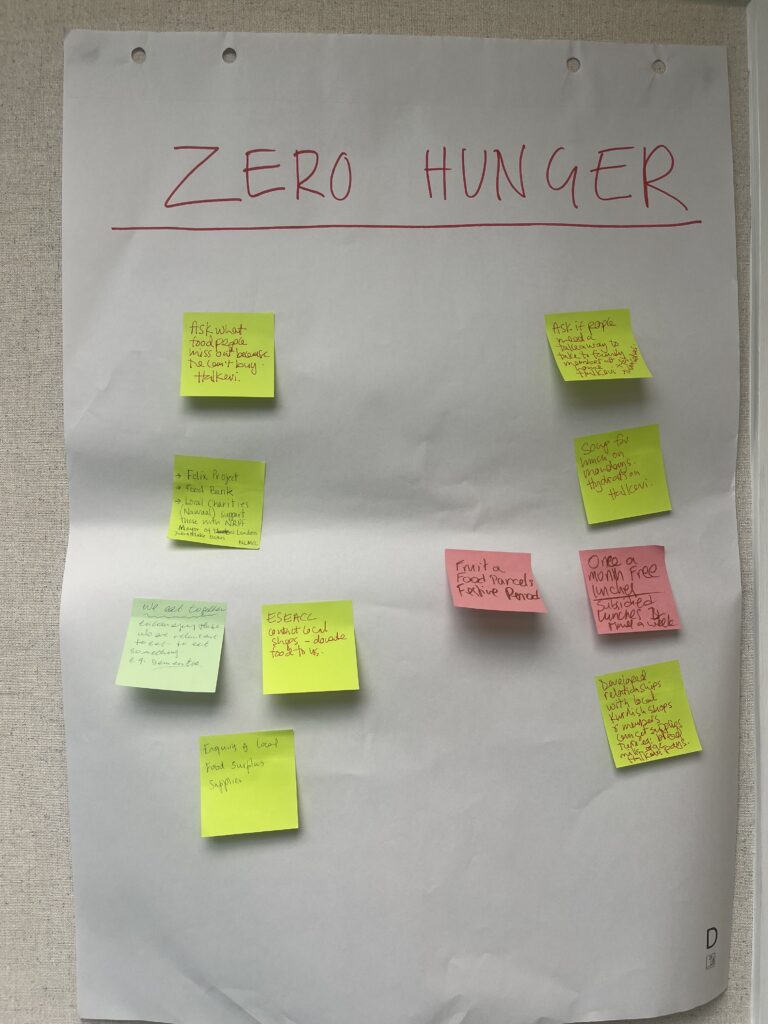 ZERO HUNGER
Ask what
food people
miss but because
he can't buy.
Halkevi.
→ Felix Project
→ Food Bank
→ Local Charities
(Nawaal) support
those with NRPF
Mayor of London
NLMC
We eat together
encouraging those
who are reluctant
to eat to eat
something
e.g. Dementia
ESEACC
contact local
shops - donate
food to us.
Enquiry of Local
Food Surplus
Supplies
Ask if people
need a
takeaway to
take to family
members at
home
Halkevi
Soup for
lunch on
mondays.
Hydration
Halkevi.
Fruit a
Food Parcels
Festive Period
Once a
month free
lunches
Subsidised
lunches
meal a week
Developed
relationships
with local
Kurdish shops
& members
can get supplies
bread
milk eggs
Halkevi pays.
D